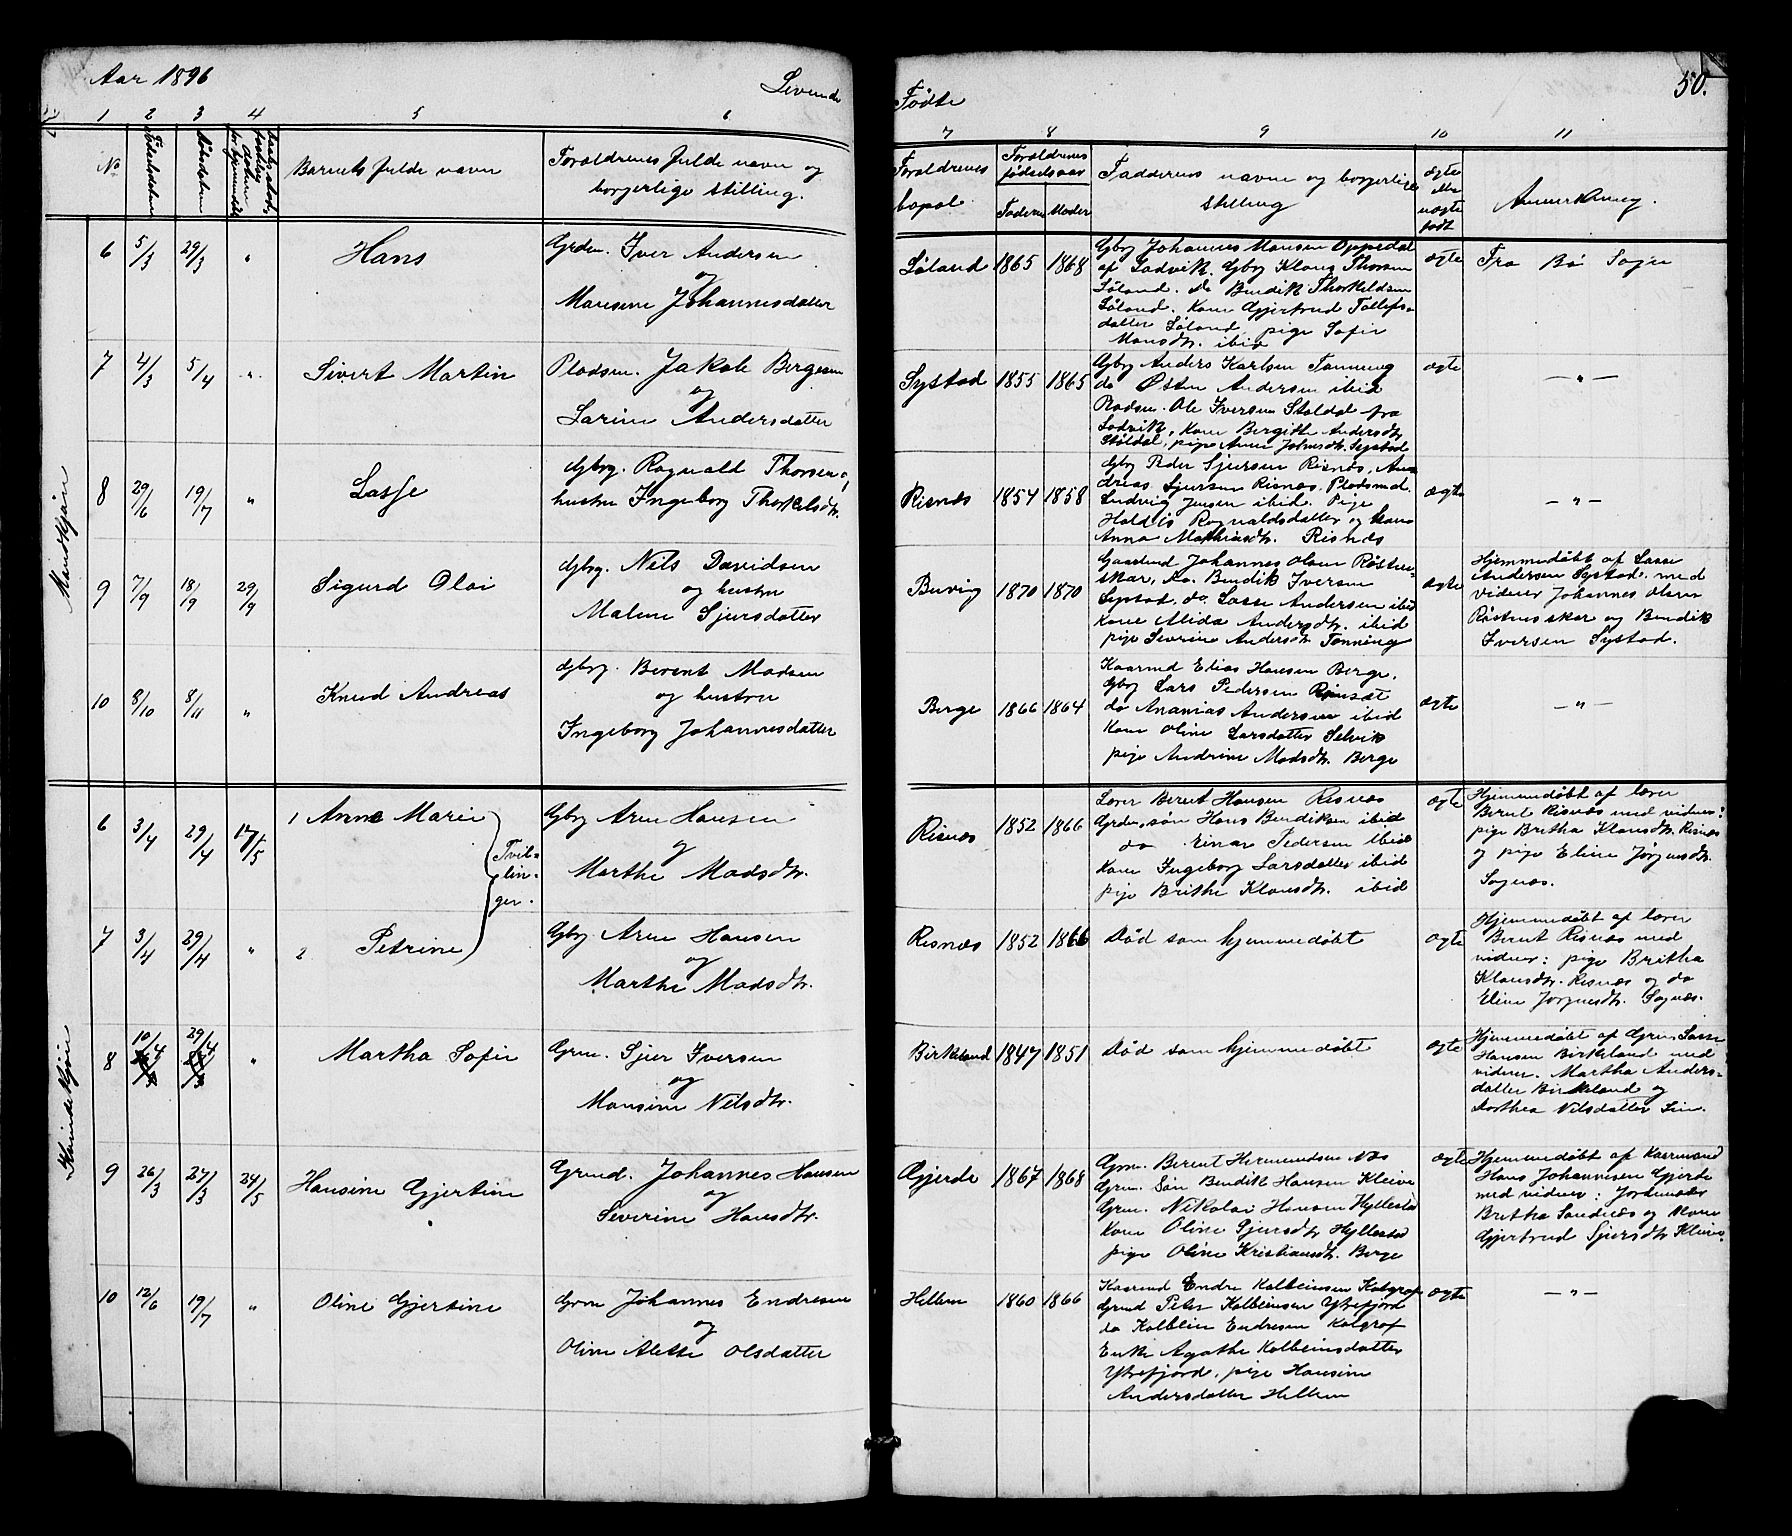 Aar 1896
Levende
Fødte
50.
1 2 3 4 5 6
7 8 9 10 11
No
Fødselsdatum
Daabsdatum
Barnets fulde navn
Forældrenes fulde navn og
borgerlige stilling.
Forældrenes
bopæl
Forældrenes
fødselsaar
Faderens Moder
Fadderens navne og borgerlige
stilling
ægte
eller
uægte
født
Anmerkning.
Mandkjøn
6 5/3 29/3 "
Hans
Grdm. Iver Andersen
og
Mansine Johannesdatter
Søland 1865 1868
Gbrg Johannes Monsen Oppedal
af Ladvik. Gbrg Klaus Thorsen
Søland. Do Bendik Thorkildsen
Søland. Kone Gjertrud Tollefs-
datter Søland, pige Sofie
Monsdtr. ibid
ægte
Fra Bø Sogn
7 4/3 5/4 "
Sivert Martin
Pladsm. Jakob Bergesen
og
Larine Andersdatter
Systad 1855 1865
Gbrg Anders Karlsen Tonning
do Østen Andersen ibid
Pladsm. Ole Iversen Stoldal fra
Ladvik, Kone Bergitte Andersdtr.
Støldal, pige Anne Johnsdtr. Systad
ægte
— " —
8 29/6 19/7 "
Lasse
Gbrg. Ragnald Thorsen og
hustru Ingeborg Thorkelsdtr.
Risnæs 1854 1858
Gbrg Peder Sjursen Risnæs, An-
dreas Sjursen Risnæs, Pladsmd.
Ludvig Jensen ibid. Pige
Haldis Ragnaldsdatter og Kone
Anna Mathiasdtr. Risnæs
ægte
— " —
9 7/9 18/9 29/9
Sigurd Olai
Gbrg. Nils Davidsen
og hustru
Malene Sjursdatter
Buvig 1870 1870
Gaardmd Johannes Olsen Röstnes-
skar, do. Bendik Iversen
Systad, do. Lasse Andersen ibid
Kone Alida Andersdtr. ibid
pige Severine Andersdtr Tonning
ægte
Hjemmedøbt af Lasse
Andersen Systad. med
vidner Johannes Olsen
Röstnesskar og Bendik
Iversen Systad.
10 8/10 8/11 "
Knud Andreas
Gbrg. Berent Madsen
og hustru
Ingeborg Johannesdatter
Berge 1866 1864
Kaarmd Elias Hansen Berge.
Gbrg Lars Pedersen Risnæs
do Ananias Andersen ibid
Kone Oline Larsdatter Selvik
pige Andrine Madsdtr. Berge
ægte
— " —
Kvindekjøn
6 3/4 29/4 17/5
1 Anne Marie
Tvil-
lin-
ger.
Gbrg Aren Hansen
og
Marthe Madsdtr.
Risnæs 1852 1866
Lærer Bernt Hansen Risnæs
Grdm. søn Hans Bendiksen ibid
do Einar Pedersen ibid
Kone Ingeborg Larsdatter ibid
pige Brithe Klausdtr. ibid
ægte
Hjemmedøbt af lærer
Bernt Risnæs med vidner:
pige Britha Klausdtr. Risnæs
og pige Eline Jörgensdtr.
Sognæs.
7 3/4 29/4 "
2 Petrine
Gbrg Aren Hansen
og
Marthe Madsdtr.
Risnæs 1852 1866
Død som hjemmedøbt
ægte
Hjemmedøbt af lærer
Bernt Risnæs med
vidner: pige Britha
Klausdtr. Risnæs og do
Eline Jörgensdtr. Sognæs.
8 10/4 29/4 "
Martha Sofie
Grm. Sjur Iversen
og
Monsine Nilsdtr.
Birkeland 1847 1851
Død som hjemmedøbt
ægte
Hjemmedøbt af Grm. Lasse
Hansen Birkeland med
vidner. Martha Anders-
datter Birkeland og
Dorthea Nilsdatter Lin.
9 26/3 27/3 24/5
Hansine Gjertine
Grmd. Johannes Hansen
og
Severine Hansdtr.
Gjerde 1867 1868
Grm. Berent Hermundsen Næs
Grm. Søn Bendik Hansen Kleive
Grm. Nikolai Hansen Hyllestad
Kone Oline Sjursdtr Hyllestad
pige Oline Kristiansdtr. Berge
ægte
Hjemmedøbt af Kaarmand
Hans Johannesen Gjerde
med vidner: Jordemoder
Britha Sandnæs og Kone
Gjertrud Sjursdtr Kleive
10 12/6 19/7 "
Oline Gjertine
Grm Johannes Endresen
og
Oline Alette Olsdatter
Hellem 1860 1866
Kaarmd Endre Kolbeinsen Kolgrof
Grmd Peter Kolbeinsen Ytrefjord
do Kolbein Endresen Kolgrof
Enke Agathe Kolbeinsdatter
Ytrefjord, pige Hansine
Andersdatter Hellem
ægte
— " —